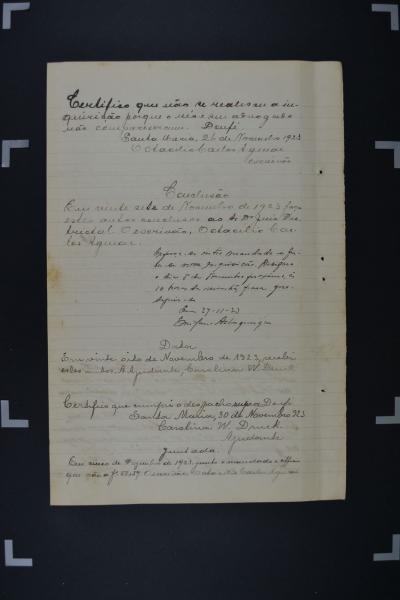 Certifico que não se realisou a in-
quirição porque o réo e seu advogado
não compareceram. Doufé.
Santa Maria, 26 de Novembro 1923
Octacilio Carlos Aguiar
Escrivão
Conclusão
Em vinte sete de Novembro de 1923 faço
estes autos conclusos ao Sr. Dr. Juiz Dis-
trictal. O escrivão, Octacilio Car-
los Aguiar.
outro mandado
de nova inquirição. Designo
o dia 5 de Dezembro proximo, ás
10 horas da manhã, para
27-11-23
Data
Em vinte oito de Novembro de 1923, recebi
estes autos. A Ajudante, Carolina W. Druck
Certifico que cumpri o despacho supra. Doufé
Santa Maria, 30 de Novembro 923
Carolina W. Druck.
Ajudante
Juntada
Em cinco de Dezembro de 1923, junto o mandado e
que vão a f. O escrivão, Octacilio Carlos Aguiar